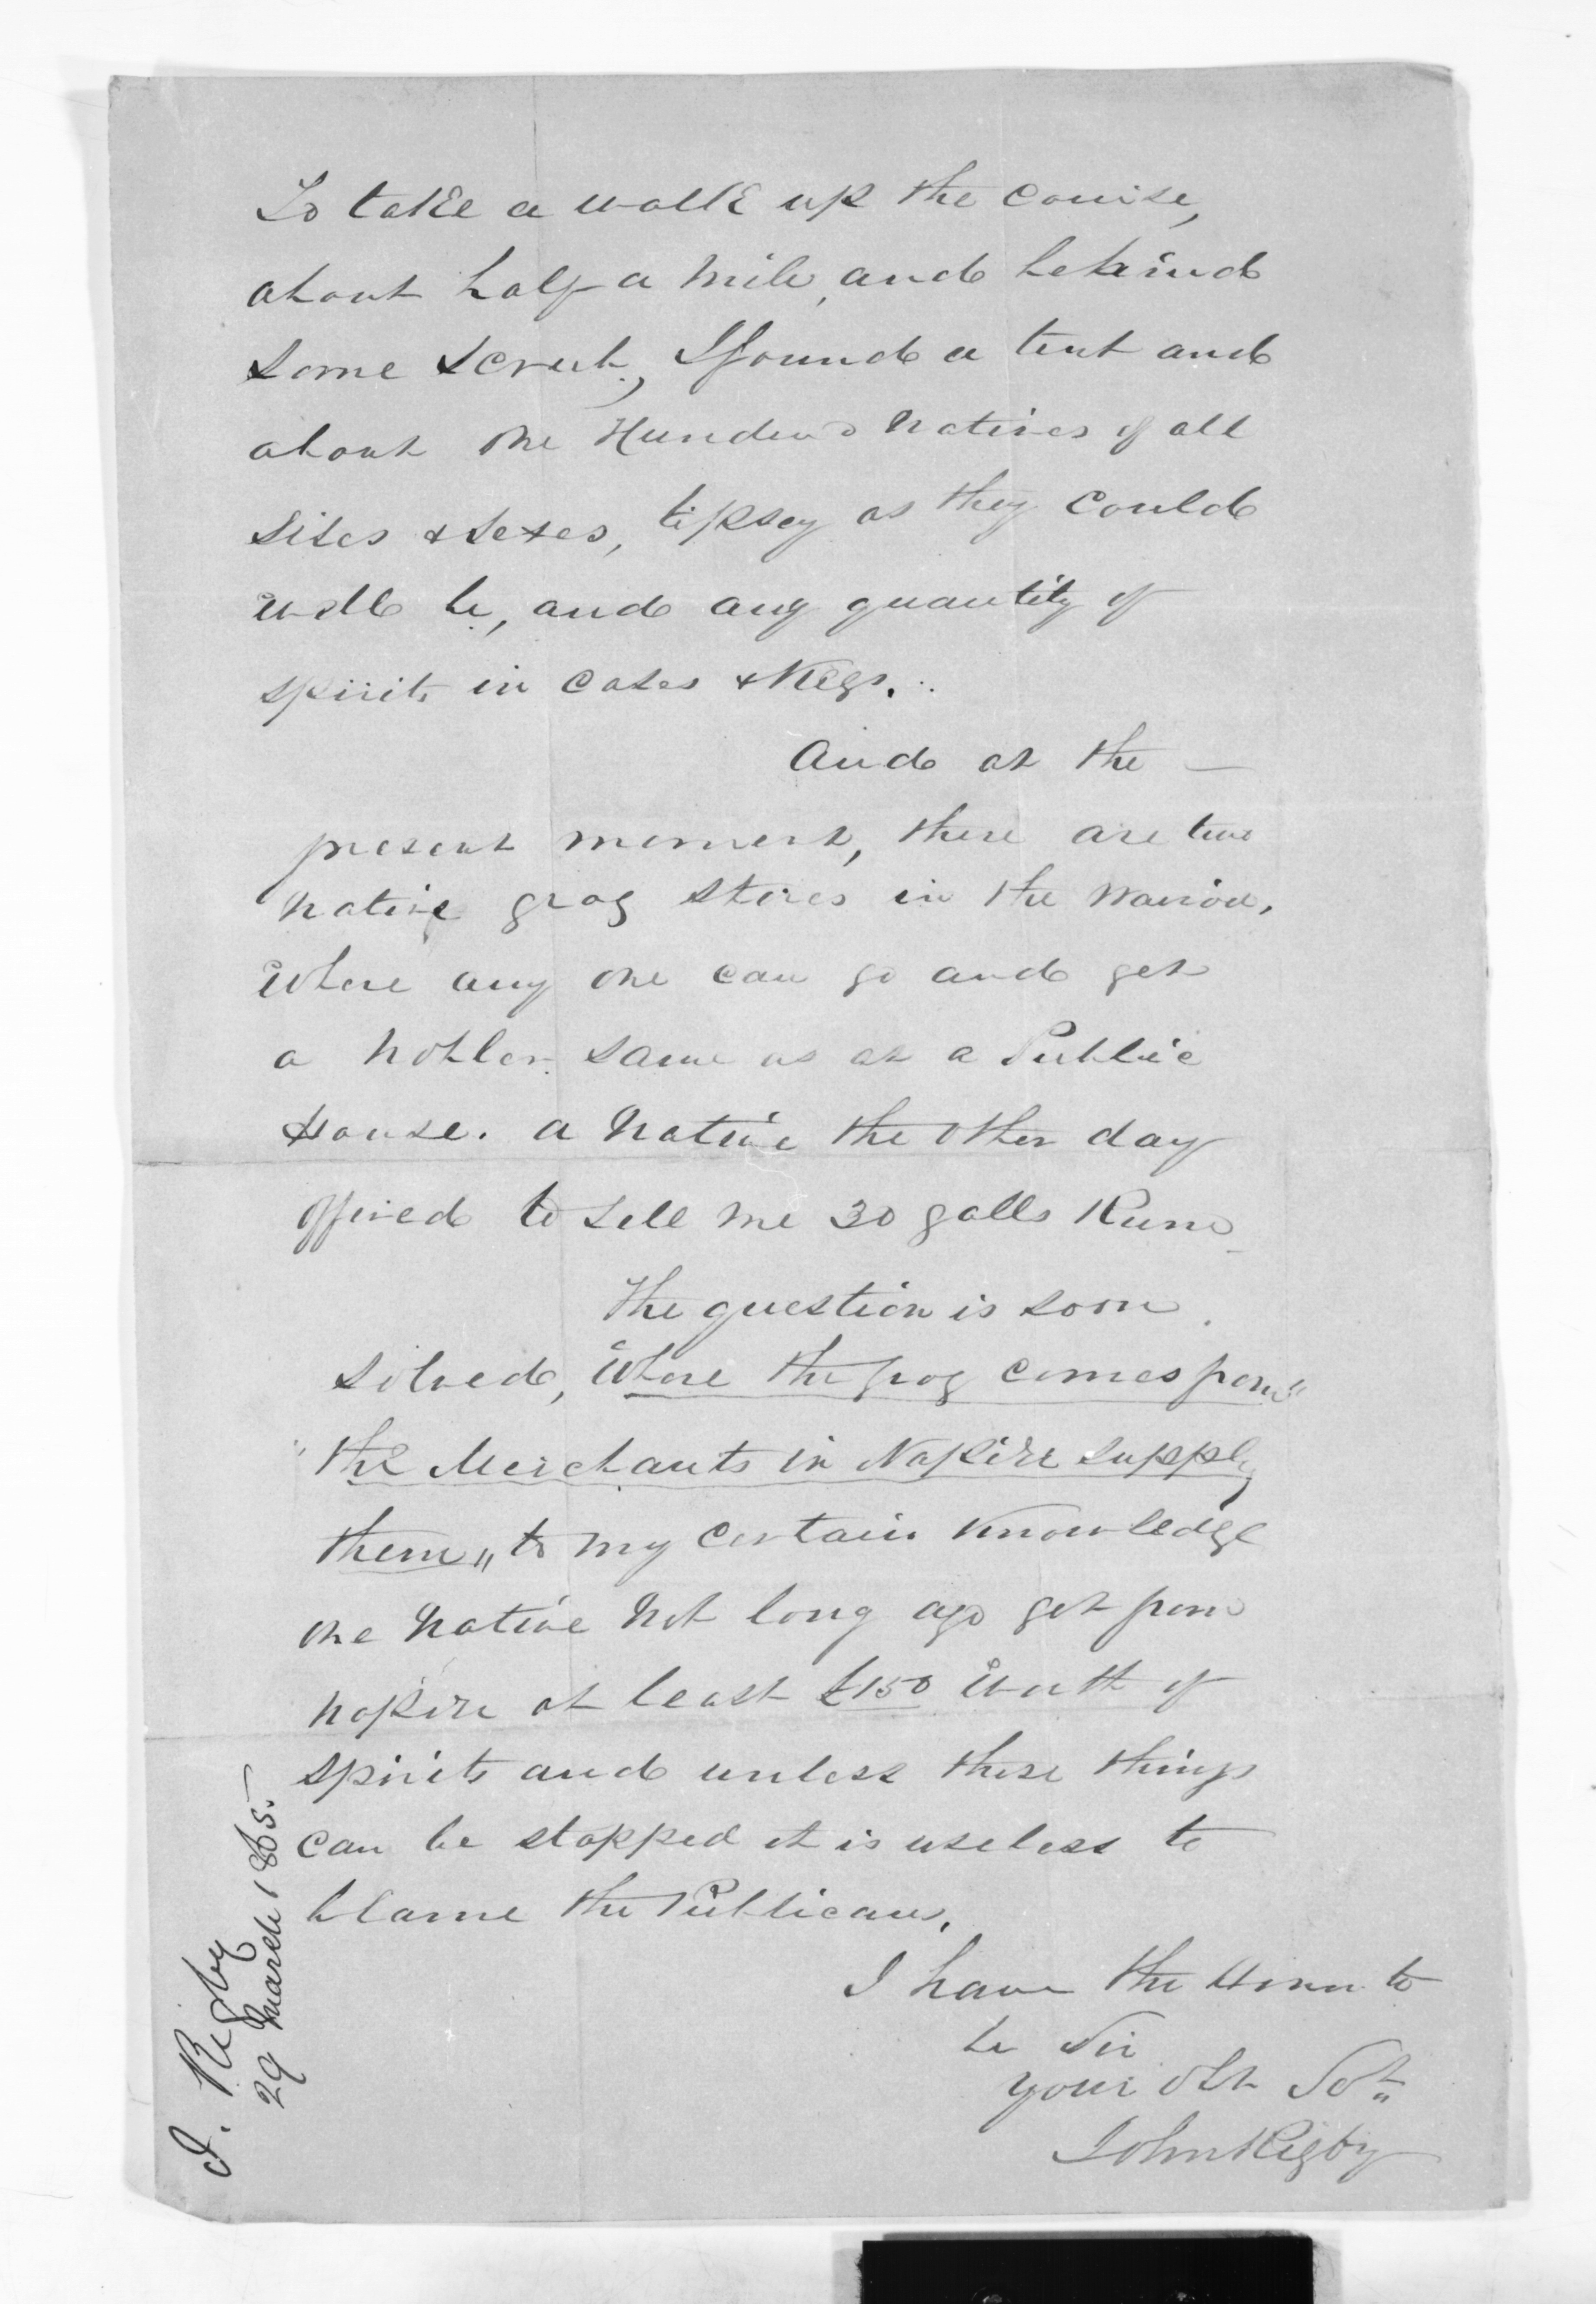 To take a walk up the course,
about half a mile, and behind
some scrub, I found a tent and
about one Hundred natives of all
sises & sexes, tipsey as they could
well be, and any quantity of
spirits in cases & Kegs.
And at the —
present moment, there are two
native grog stores in the Wairoa,
Where any one can go and get
a nobler same as at a Public
House. a Native the other day
offered to sell me 30 galls Rum
The question is soon
solved, Where the grog comes from"
"the Merchants in Napier supply
them" to my certain Knowledge
one Native not long ago got from
Napier at least £150 Worth of
spirits and unless these things
can be stopped it is useless to
blame the Publicans.
I have the Honor to
be Sir
your Obt Svt"
John Rigby
J. Rigby
29 March 1865.